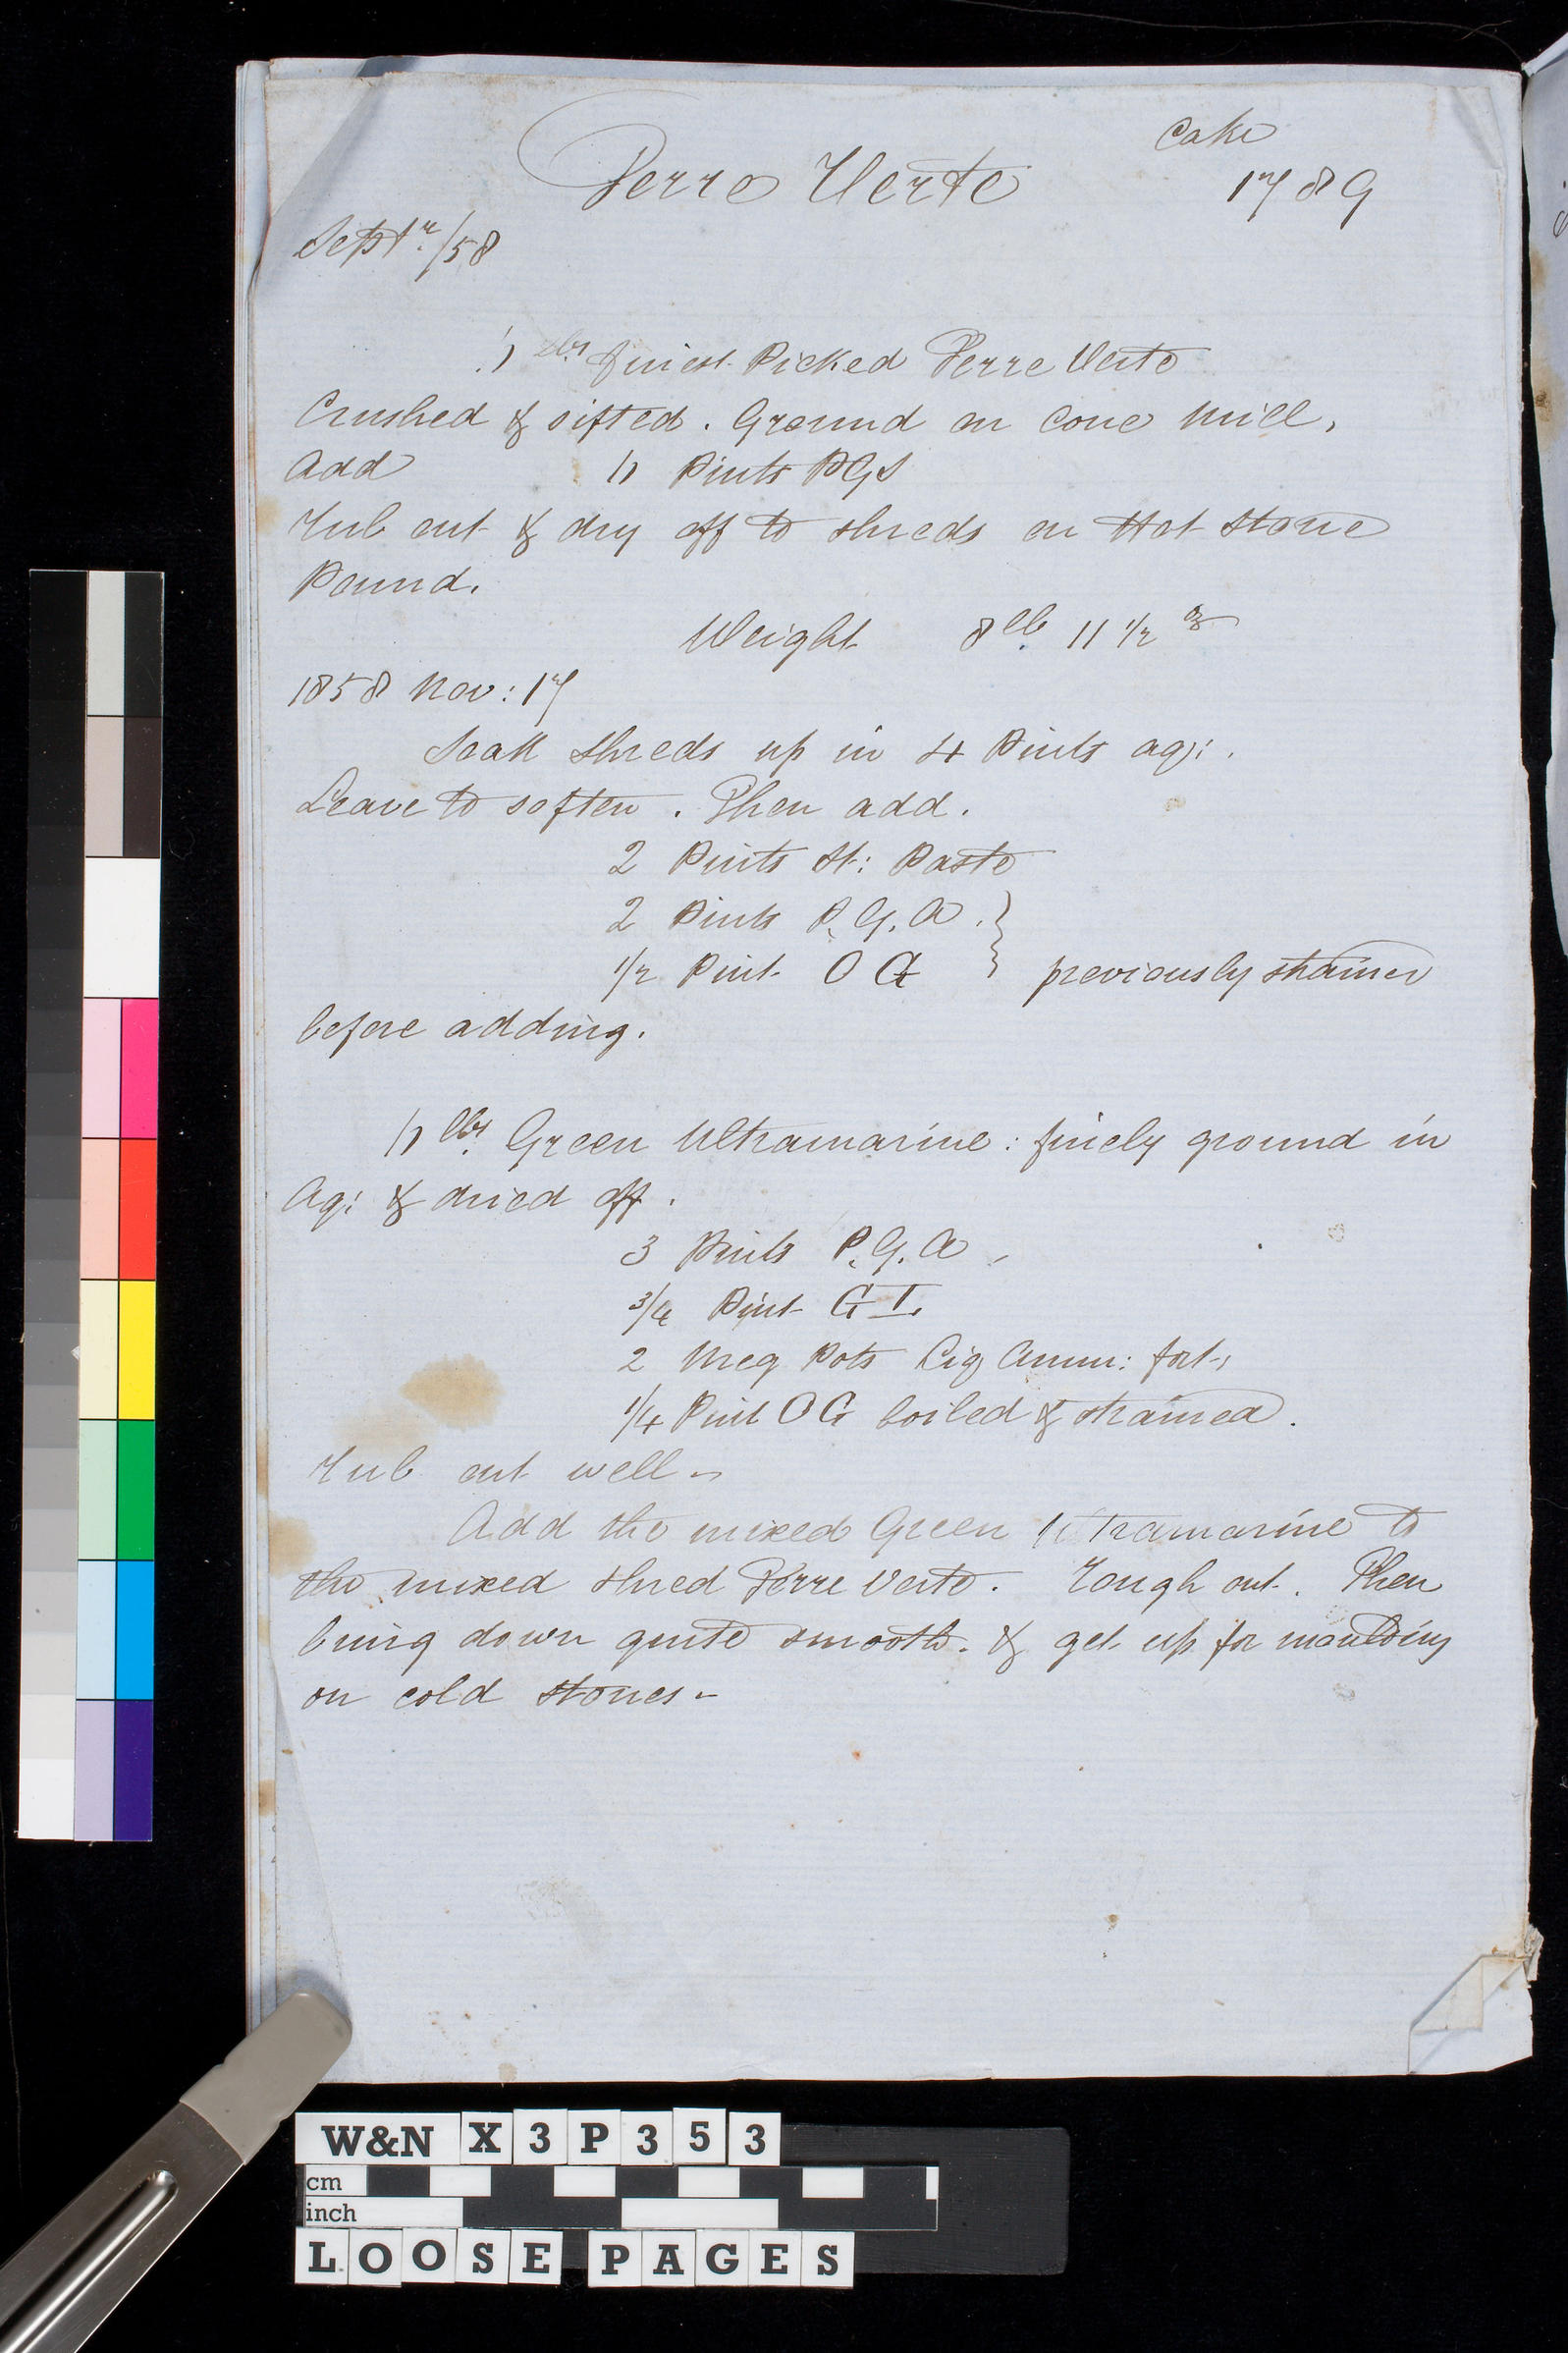 Cake
Terre Verte 1789
Septr./58
lbs finest Picked Terre Verte
Crushed & sifted. Ground on Cone Mill,
Add Pints PGS
Rub out & dry off to shreds on Hot Stone
Pound.
Weight 8 lb. 11 1/2 oz
1858 Nov: 17
Soak shreds up in 4 Pints aq:.
Leave to soften. Then add.
2 Pints St: Paste
2 Pints P.G.A.
1/2 Pint OG } previously strained
before adding.
lbs. Green Ultramarine: finely ground in
Aq: & dried off.
3 Pints P.G.A
3/4 Pint GT.
2 Meg Pots Liq Amm: fort,
1/4 Pint OG boiled & strained.
Rub out well-
Add the mixed Green Ultramarine to
the mixed shred Terre Verte. Rough out. Then
bring down quite smooth. & get up for moulding
on cold stones-
W&N X3P353
cm
inch
LOOSE PAGES